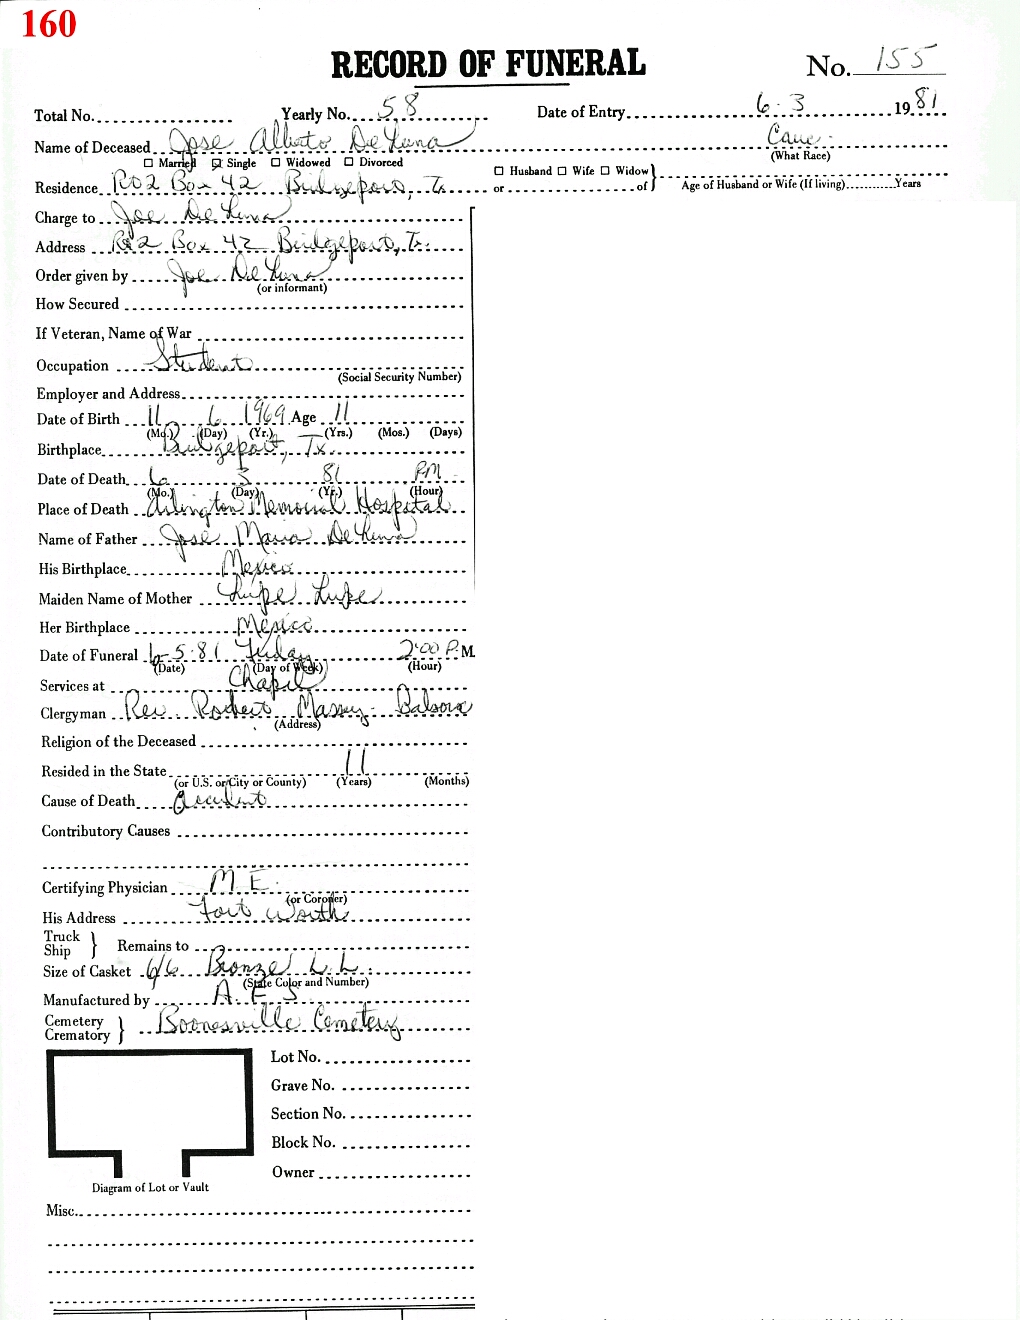 160
RECORD OF FUNERAL No. 155
Total No. Yearly No. 58 Date of Entry 6-3 1981
Name of Deceased Jose Alberto De Luna Cauc.
☐ Married ☒ Single ☐ Widowed ☐ Divorced (What Race)
☐ Husband ☐ Wife ☐ Widow }
Residence Rt 2 Box 42 Bridgeport, Tx. or of } Age of Husband or Wife (If living) Years
Charge to Joe De Luna
Address Rt 2 Box 42 Bridgeport, Tx.
Order given by Joe De Luna
(or informant)
How Secured
If Veteran, Name of War
Occupation Student
(Social Security Number)
Employer and Address
Date of Birth 11 6 1969 Age 11
(Mo.) (Day) (Yr.) (Yrs.) (Mos.) (Days)
Birthplace Bridgeport, Tx.
Date of Death 6 3 81 PM
(Mo.) (Day) (Yr.) (Hour)
Place of Death Arlington Memorial Hospital
Name of Father Jose Maria De Luna
His Birthplace Mexico
Maiden Name of Mother Lupe Lupe
Her Birthplace Mexico
Date of Funeral 6-5-81 Friday 2:00 P.M.
(Date) (Day of Week) (Hour)
Services at Chapel
Clergyman Rev. Robert Massey -
(Address)
Religion of the Deceased
Resided in the State 11
(or U.S. or City or County) (Years) (Months)
Cause of Death Accident
Contributory Causes
Certifying Physician M E
(or Coroner)
His Address Fort Worth
Truck Ship } Remains to
Size of Casket 6/6 Bronze L.L.
(State Color and Number)
Manufactured by A. E S
Cemetery Crematory } Boonesville Cemetery
Lot No.
Grave No.
Section No.
Block No.
Owner
Diagram of Lot or Vault
Misc.